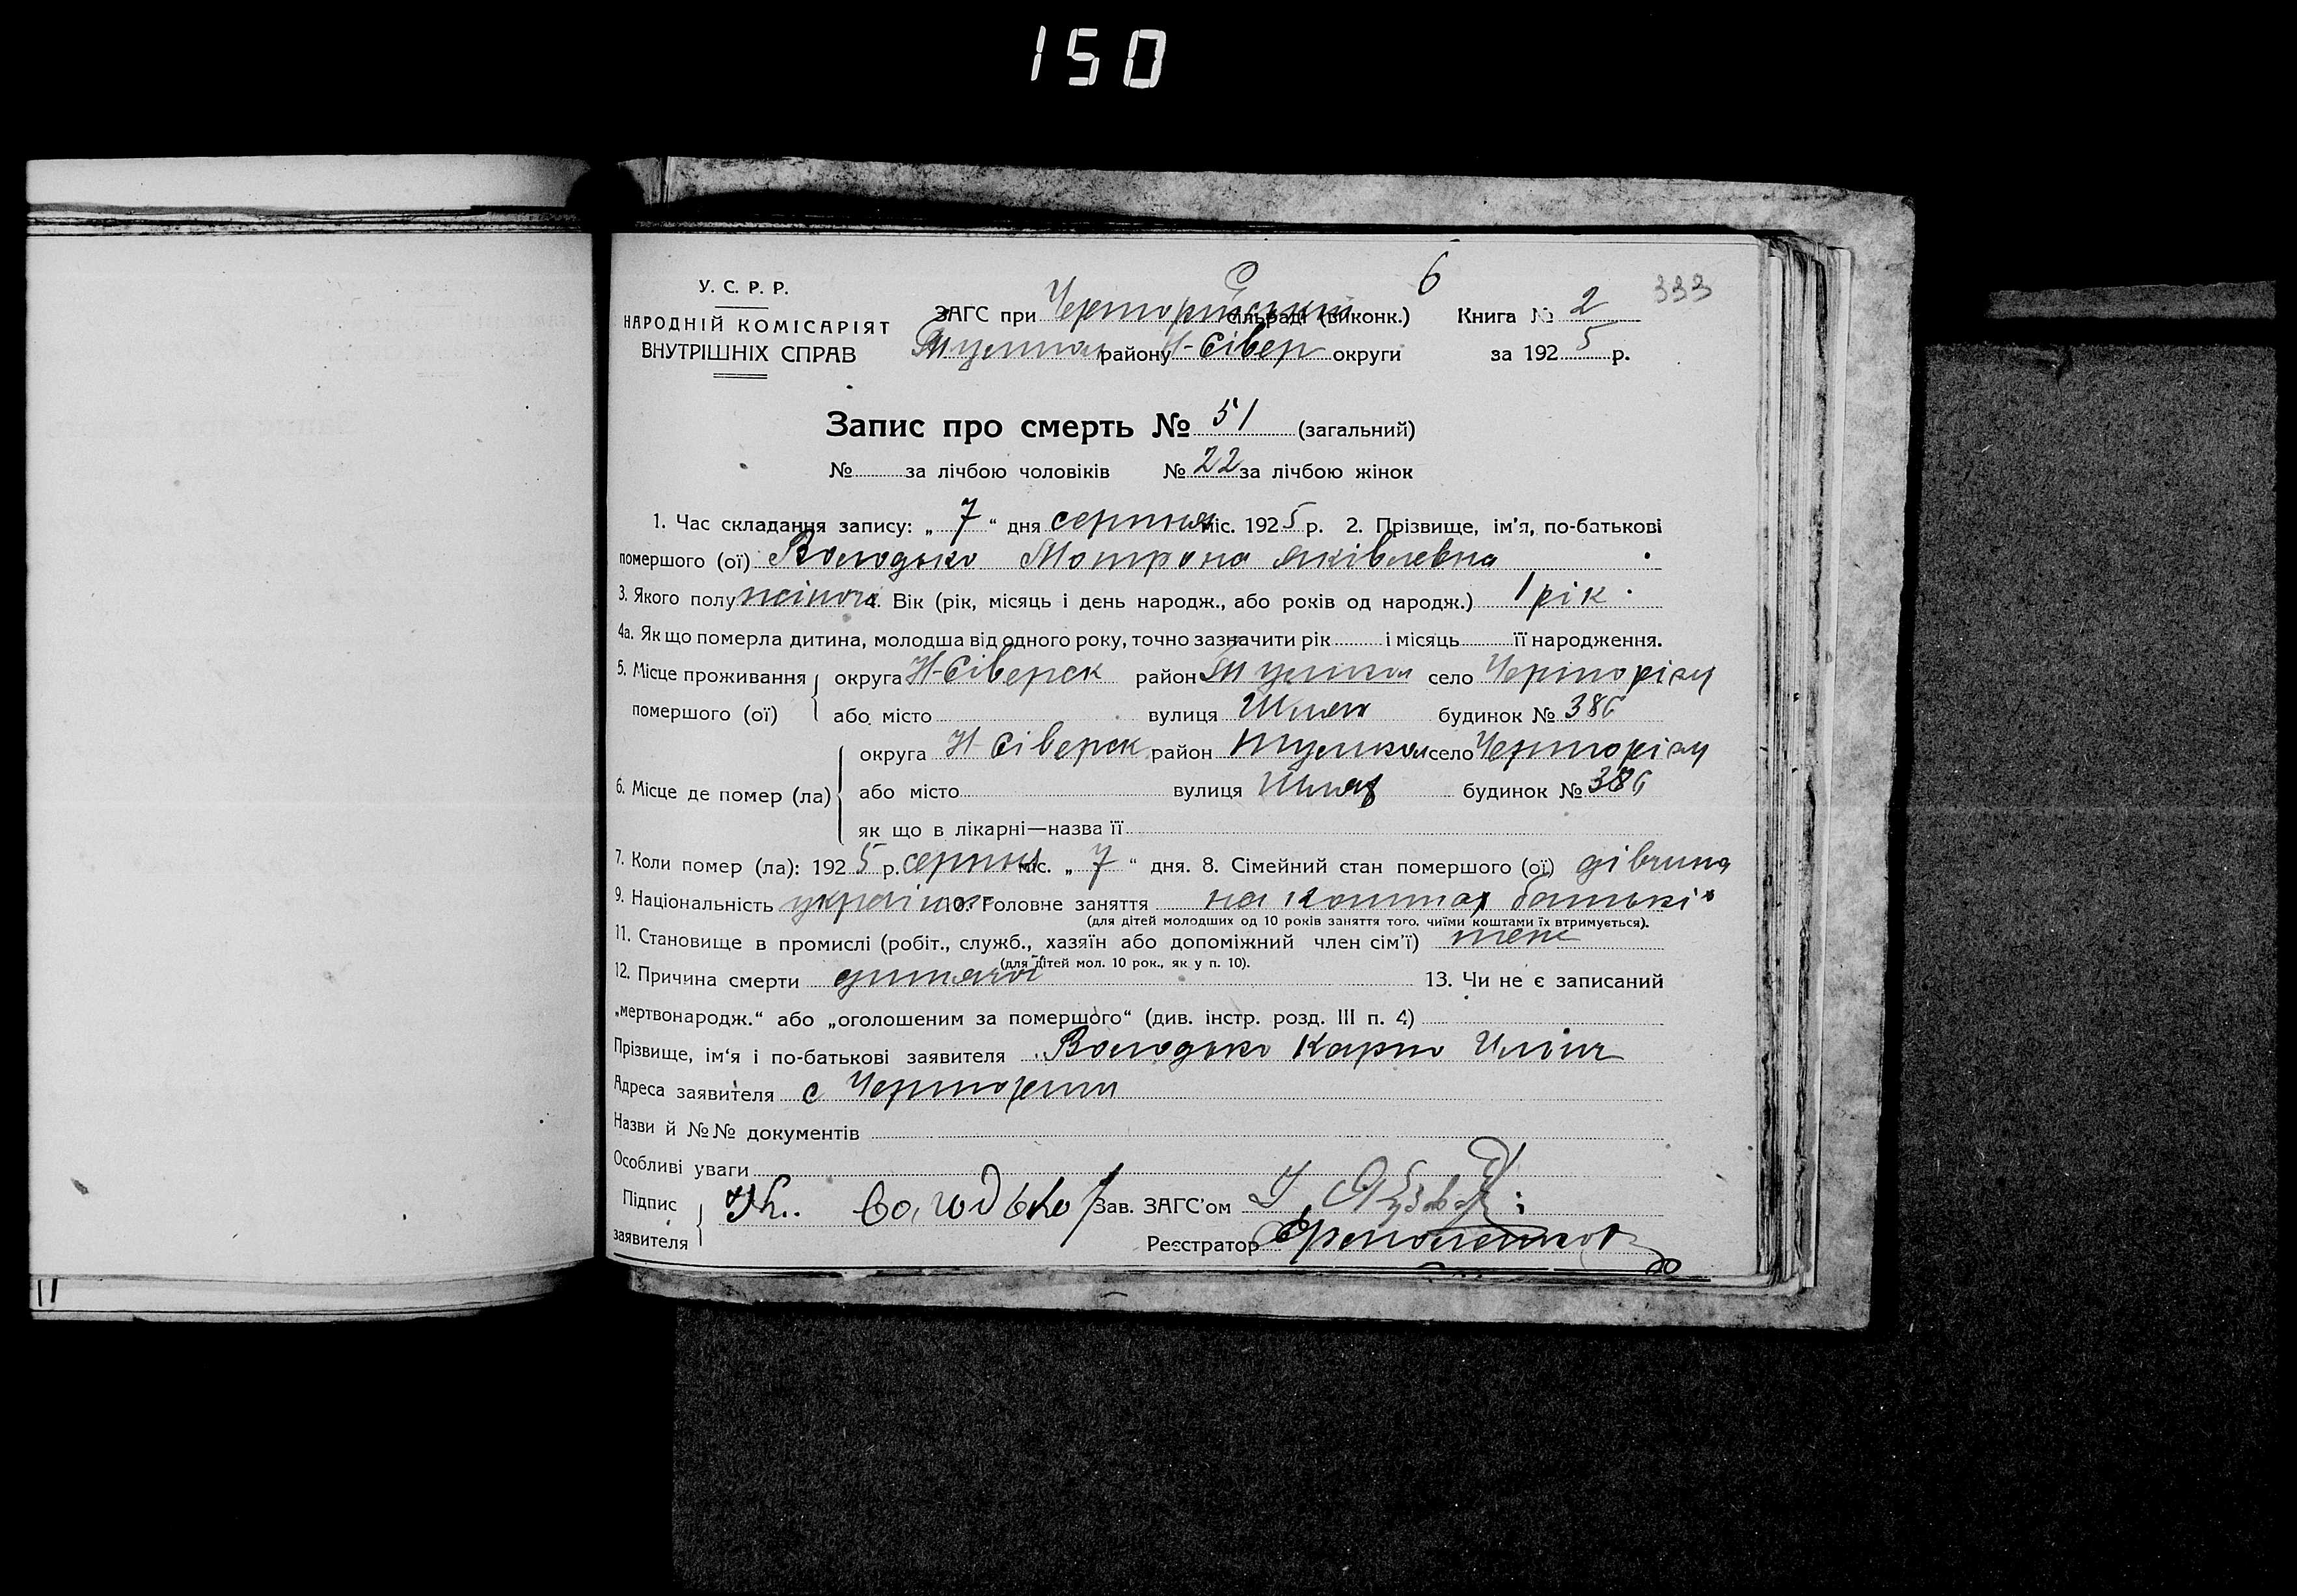 150
6
333
У. С. Р. Р.
НАРОДНІЙ КОМІСАРІЯТ
ВНУТРІШНІХ СПРАВ
ЗАГС при Черторийський сільраді (виконк.) Книга № 2
району Н-Сівер округи за 1925 р.
Запис про смерть № 51 (загальний)
№ за лічбою чоловіків № 22 за лічбою жінок
1. Час складання запису: „7“ дня серпня міс. 1925 р. 2. Прізвище, ім'я, по-батькові
помершого (ої) Володько Мотрона Яківлевна
3. Якого полу жіноча 4. Вік (рік, місяць і день народж., або років од народж.) 1 рік.
4а. Як що померла дитина, молодша від одного року, точно зазначити рік і місяць її народження.
5. Місце проживання помершого (ої) округа Н-Сіверск район село Черторіги
або місто вулиця Шлях будинок № 386
6. Місце де помер (ла) округа Н-Сіверск район село Черторіги
або місто вулиця Шлях будинок № 386
як що в лікарні—назва її
7. Коли помер (ла): 1925 р. серпня міс. „7“ дня. 8. Сімейний стан помершого (ої) дівчина
9. Національність 10. Головне заняття на коштах батьків
(для дітей молодших од 10 років заняття того, чиїми коштами їх втримується).
11. Становище в промислі (робіт., служб., хазяїн або допоміжний член сім'ї) теж
(для дітей мол. 10 рок., як у п. 10).
12. Причина смерти дитяча 13. Чи не є записаний
„мертвонародж.“ або „оголошеним за помершого“ (див. інстр. розд. III п. 4)
Прізвище, ім'я і по-батькові заявителя Володько Карпо Ілліч
Адреса заявителя с Черториги
Назви й №№ документів
Особливі уваги
Підпис заявителя К. Володько Зав. ЗАГС'ом
Реєстратор
11